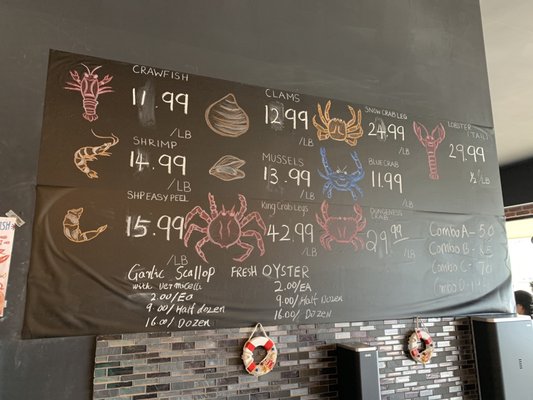 CRAWFISH
11.99
/LB
CLAMS
12.99
/LB
SNOW CRAB LEG
24.99
/LB
LOBSTER
(TAIL)
29.99
½/LB
SHRIMP
14.99
/LB
MUSSELS
13.99
/LB
BLUE CRAB
11.99
/LB
SHP EASY PEEL
15.99
/LB
King Crab Legs
42.99
/LB
DUNGENESS
CRAB
29.99
/LB
Combo A - 50
Combo B -
Combo C - 70
Combo D -
Garlic Scallop
with vermicelli
2.00/EA
9.00/Half dozen
16.00/Dozen
FRESH OYSTER
2.00/EA
9.00/Half Dozen
16.00/Dozen